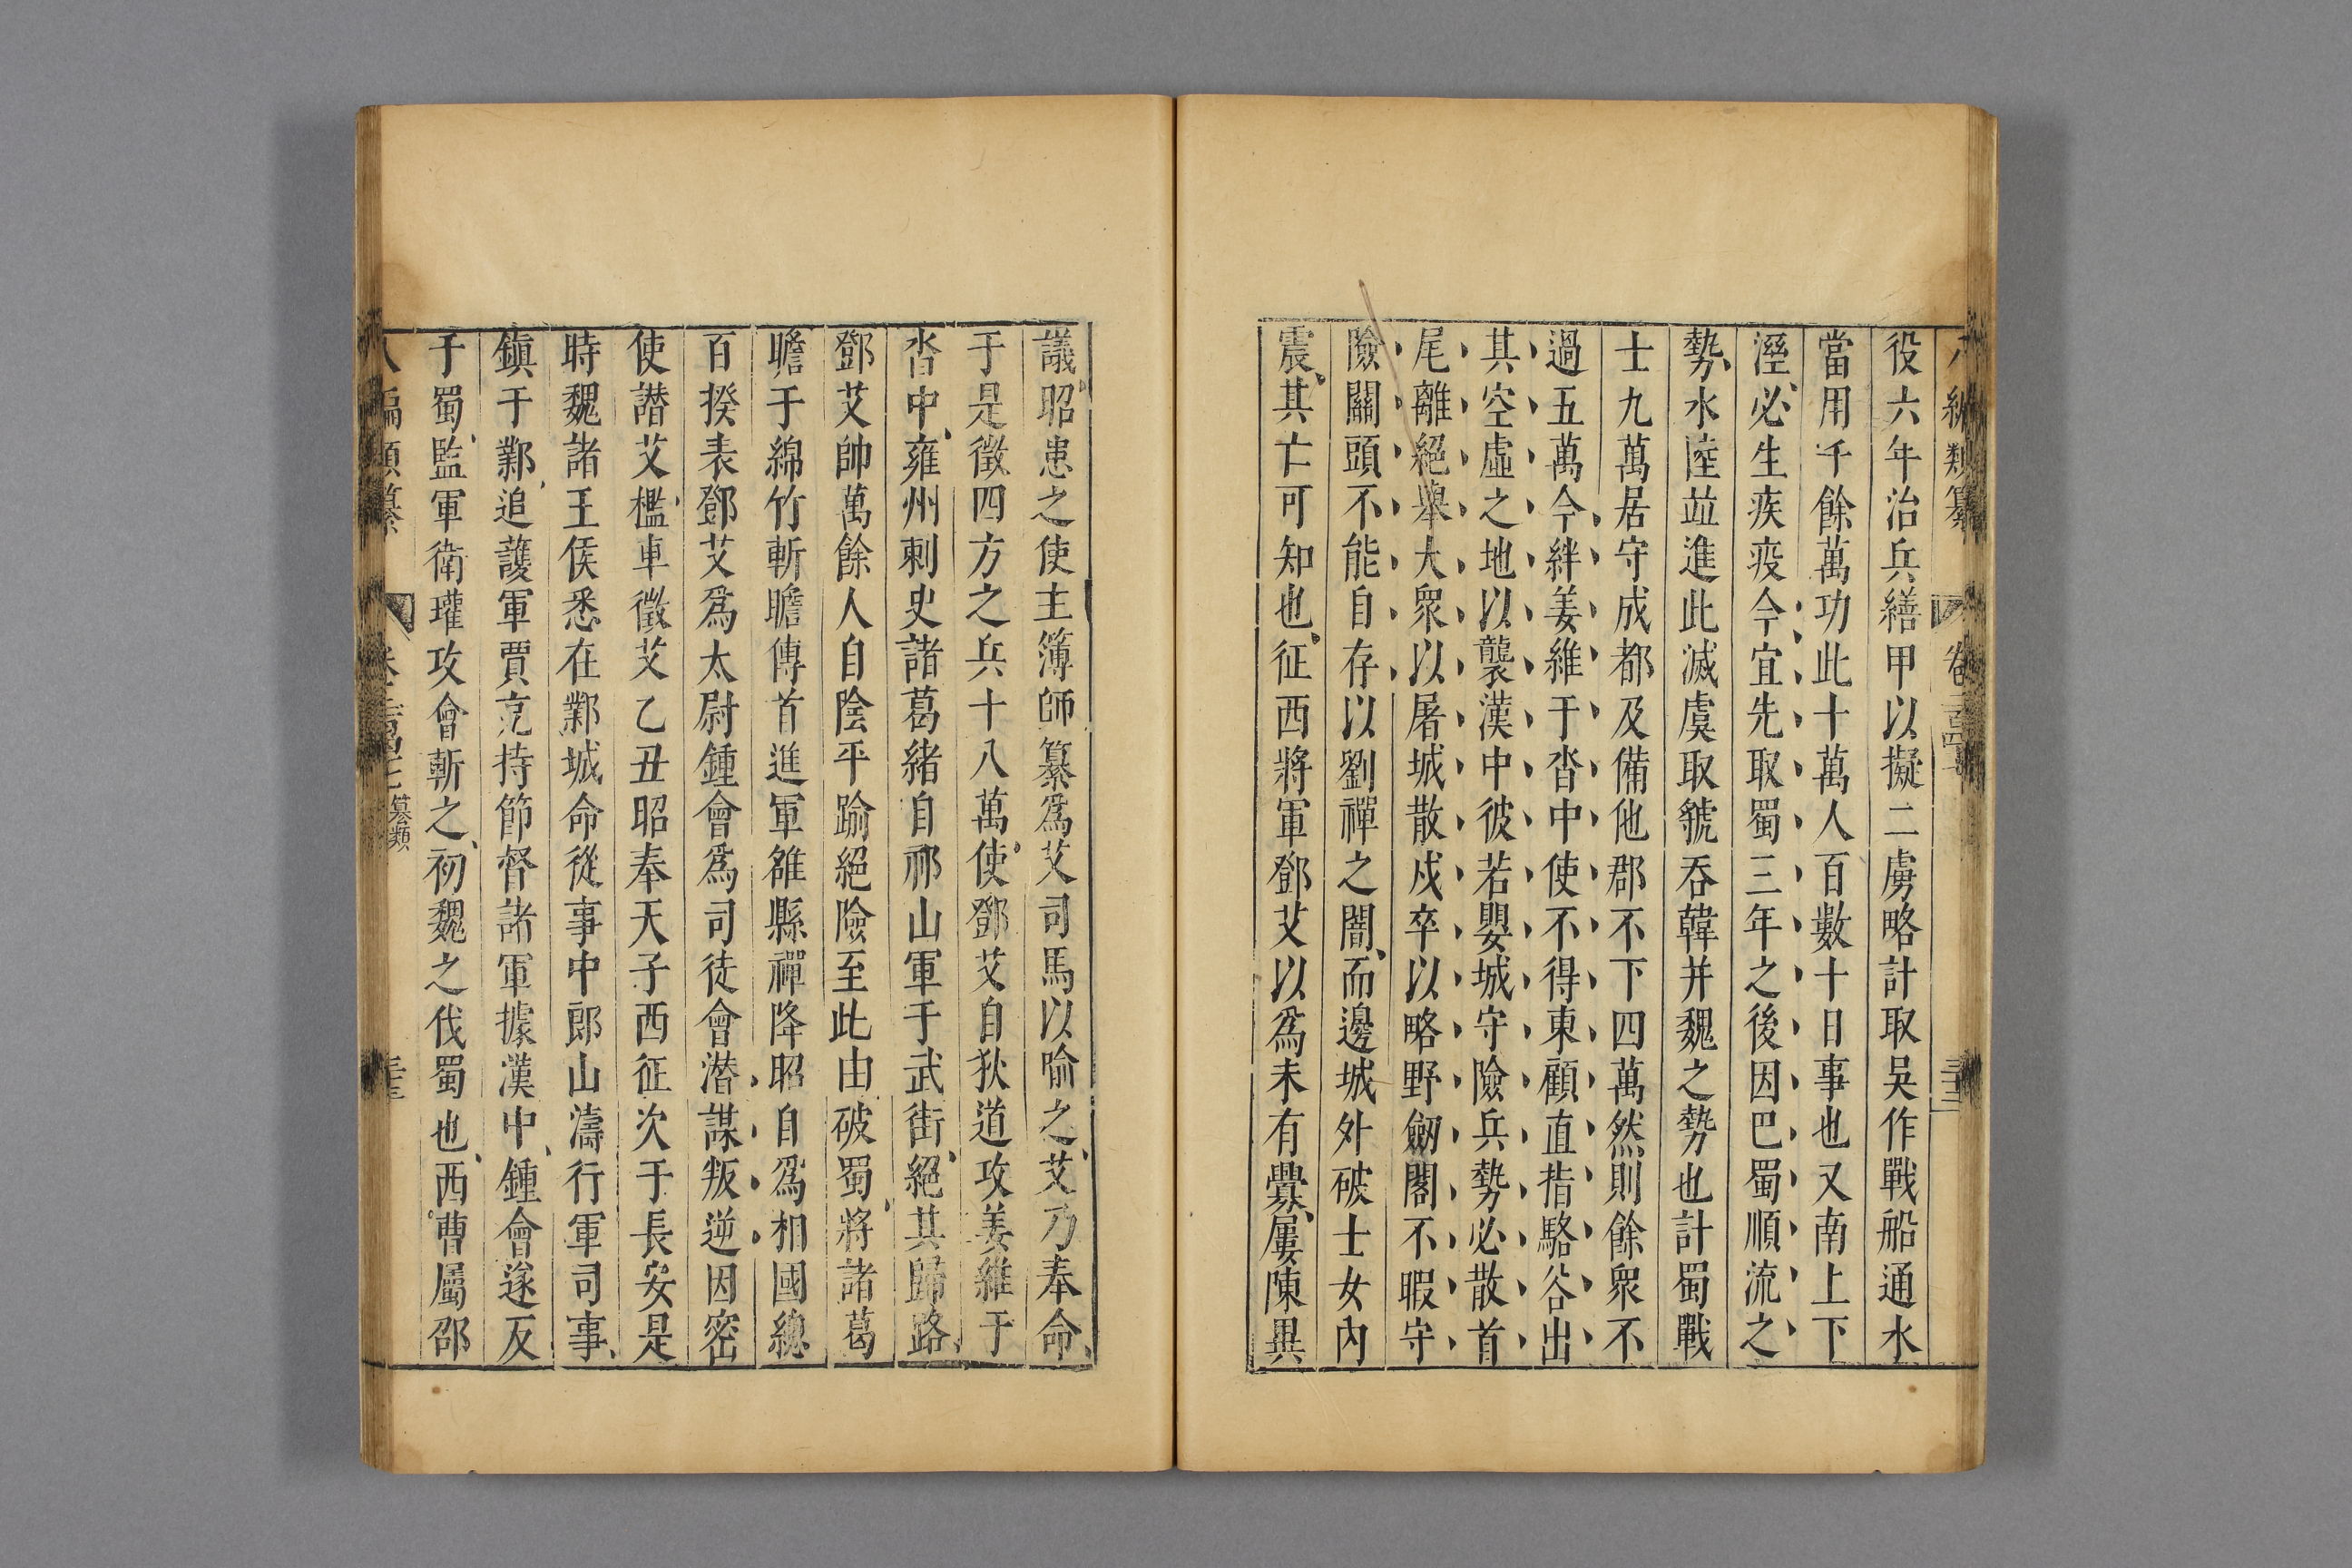 八編類纂 卷二百四十 三十三
役六年治兵繕甲以擬二虜略計取吳作戰船通水
當用千餘萬功此十萬人百數十日事也又南上下
溼必生疾疫今宜先取蜀三年之後因巴蜀順流之
勢水陸竝進此滅虞取虢吞韓并魏之勢也計蜀戰
士九萬居守成都及備他郡不下四萬然則餘衆不
過五萬今絆姜維于沓中使不得東顧直指駱谷出
其空虛之地以襲漢中彼若嬰城守險兵勢必散首
尾離絕舉大衆以屠城散戍卒以略野劒閣不暇守
險關頭不能自存以劉禪之闇而邊城外破士女內
震其亡可知也征西將軍鄧艾以爲未有釁屢陳異
議昭患之使主簿師纂爲艾司馬以喻之艾乃奉命
于是徵四方之兵十八萬使鄧艾自狄道攻姜維于
沓中雍州刺史諸葛緒自祁山軍于武街絕其歸路
鄧艾帥萬餘人自陰平踰絕險至此由破蜀將諸葛
瞻于綿竹斬瞻傳首進軍雒縣禪降昭自爲相國總
百揆表鄧艾爲太尉鍾會爲司徒會潜謀叛逆因密
使譖艾檻車徵艾乙丑昭奉天子西征次于長安是
時魏諸王侯悉在鄴城命從事中郎山濤行軍司事
鎭于鄴追護軍賈充持節督諸軍據漢中鍾會遂反
于蜀監軍衛瓘攻會斬之初魏之伐蜀也西曹屬邵
八編類纂 纂類